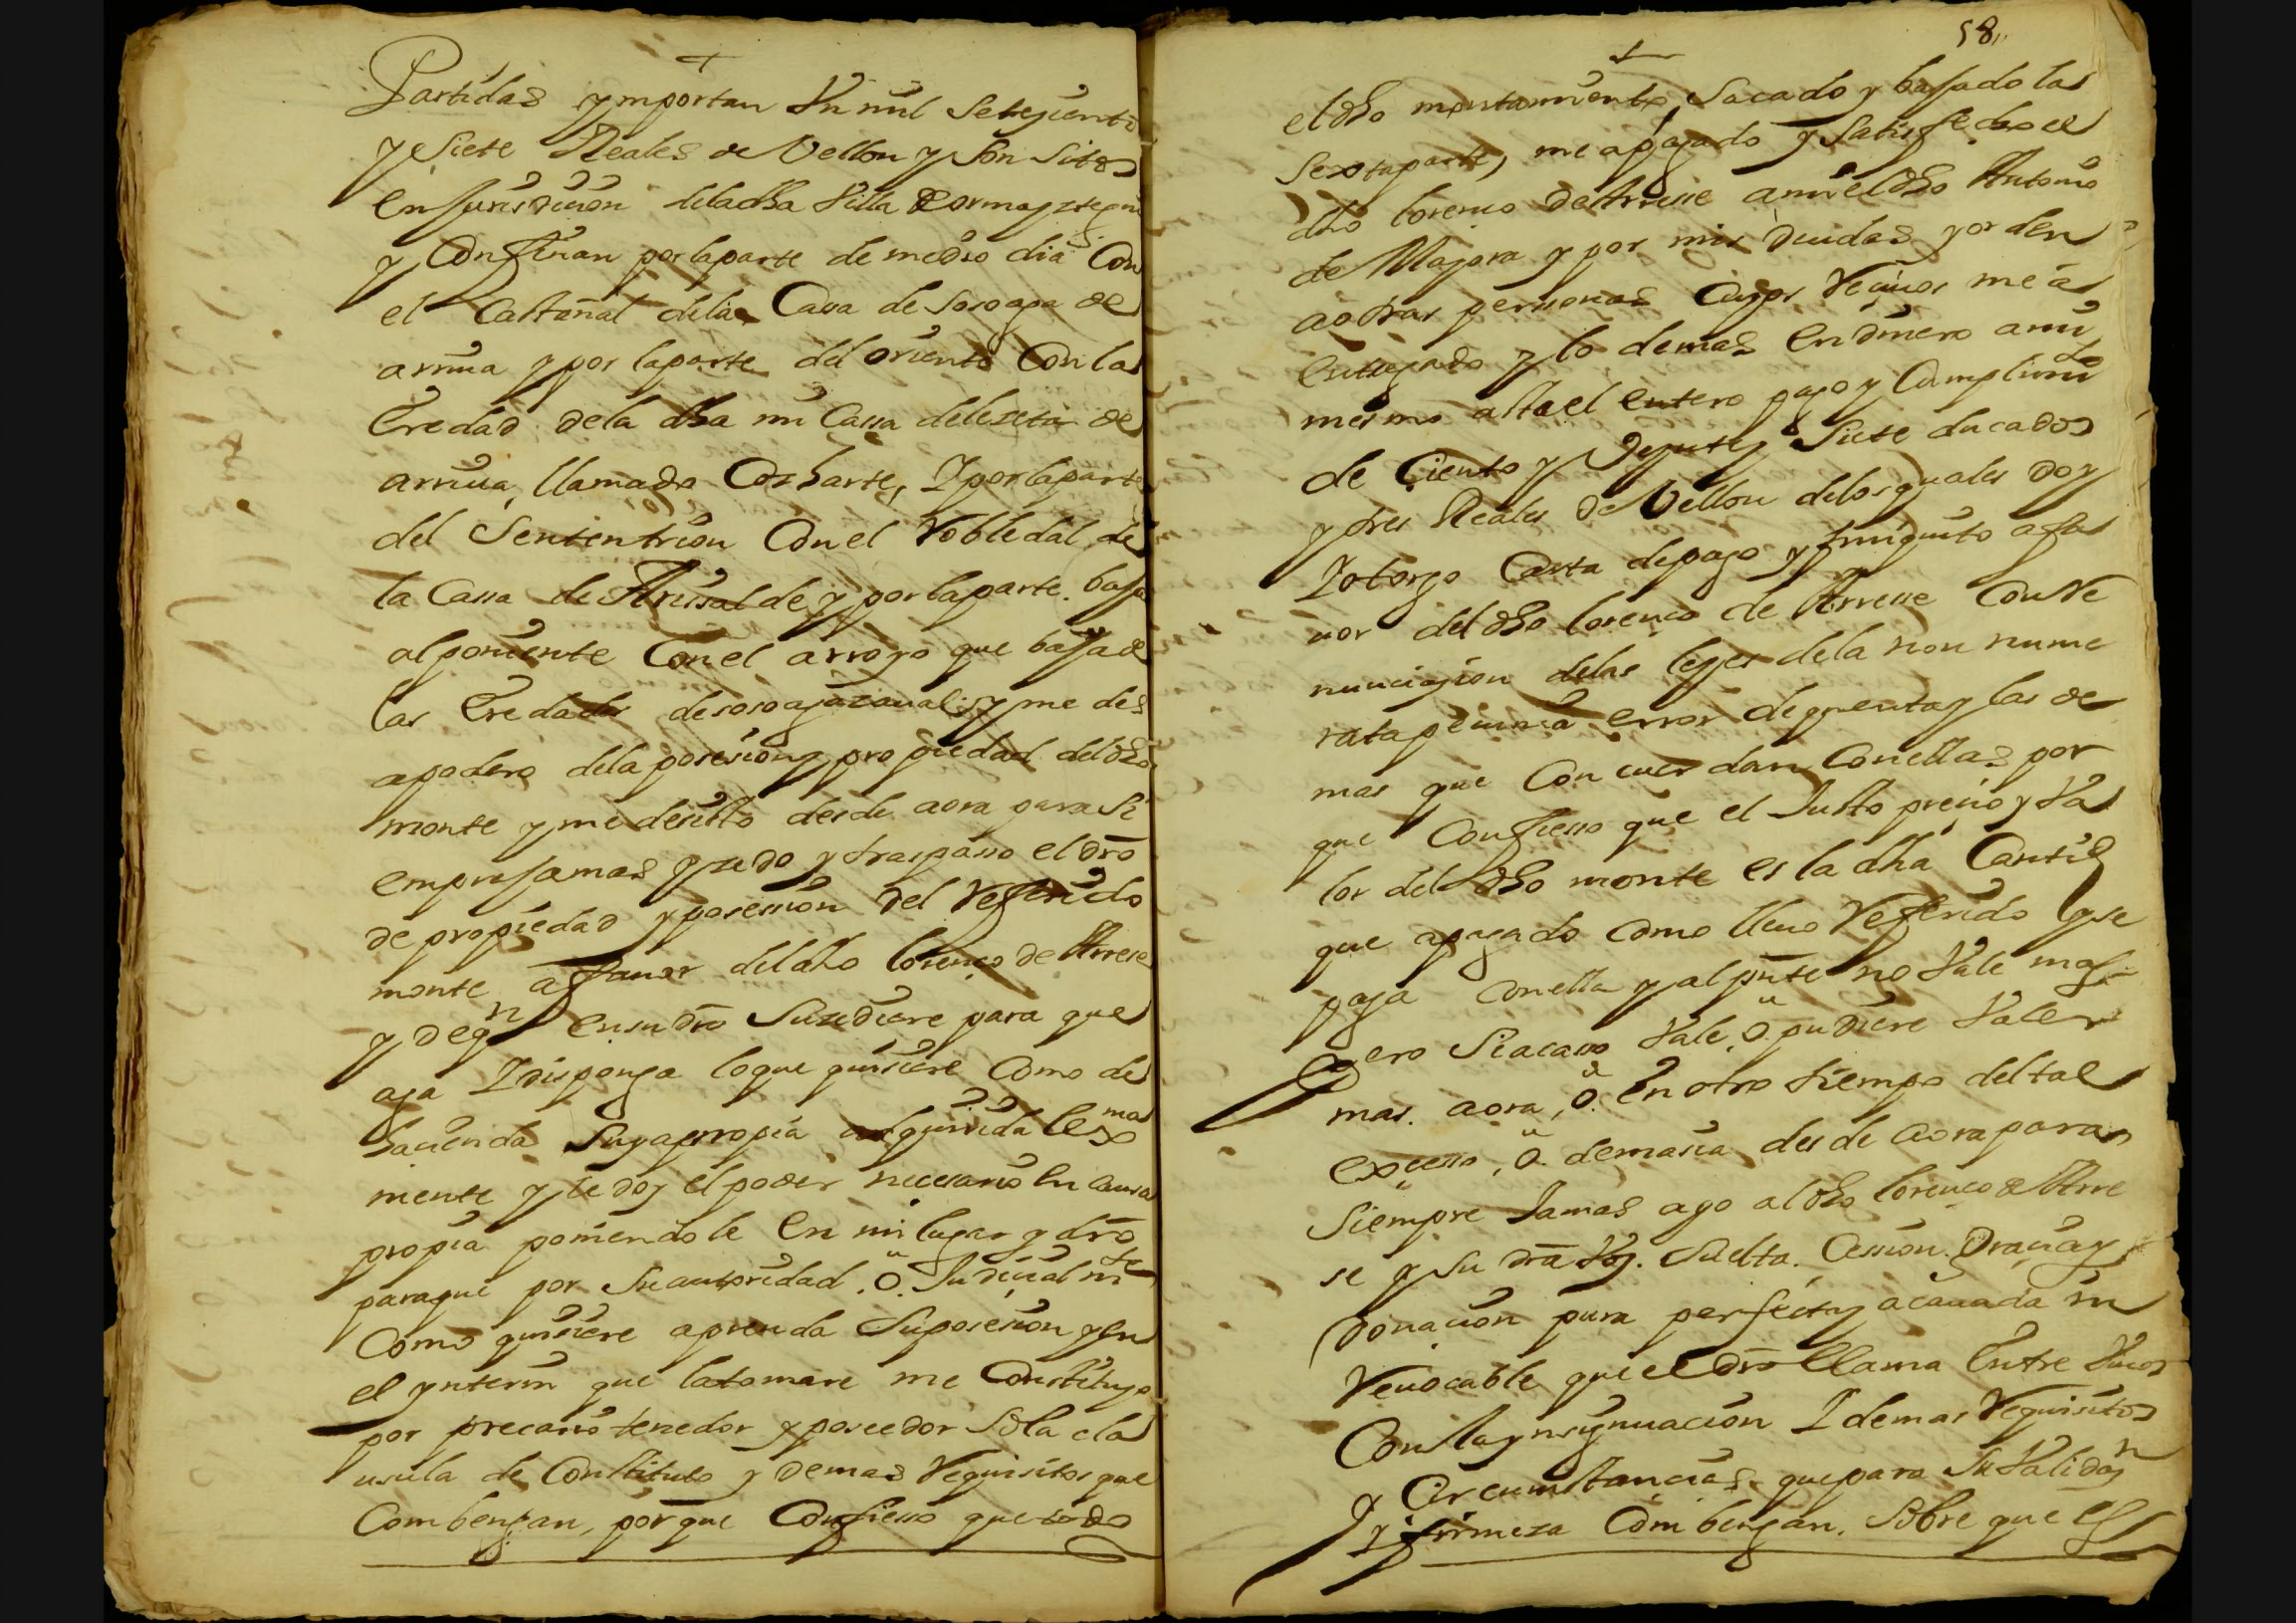 Partidas ymportan Un mil Setezientos
y Siete Reales de Vellon y Son Sitos
en Jurisdicion deladha Villa de ormayztegui
y Confinan porlaparte de medio dia Con
el Castañal dela Casa de Sosoaga de
arriua y por laparte del oriente Con la
Eredad dela dha mi Cassa delizeta de
arriua, llamada Cozharte, Y porlaparte
del Sententrion Con el Robledal de
la Cassa de Arrisalde y por laparte baja
al poniente Con el arroyo que baja de
las Eredades desosoagazaualis y me des
apodero dela posesion y propiedad deldho
monte y me desisto desde aora para Si
empre Jamas y zedo y traspasso el dro
de propiedad y posesion del Referido
monte a fauor deldho lorenço de Arrese
y de qn ensu dro Suzediere para que
aga Y disponga loque quisiere Como de
hacienda Suya propia adquirida lexma
mente y le doy el poder necesario En causa
propia poniendole En mi lugar y dro
paraque por Su autoridad, o Judicialmte
Como quisiere aprenda Su posesion y En
el ynterin que latomare me Constituyo
por precario tenedor y poseedor So la cla
usula de Constituto y demas Requisitos que
Combengan, porque Confiesso que todo
58
eldho montamiento, Sacado y bajado la
Sexta parte, me a pagado y Satisfecho el
dho lorenzo de Arrese ami eldho Antonio
de Mayora y por mis deudas y orden
a otras personas Cuyos Reciuos me a
Entregado y lo demas En dinero a mi
mesmo asta el entero pago y Cumplimto
de Ciento y Veynte y Siete ducados
y tres Reales de Vellon delos quales doy
Y otorgo Carta de pago y finiquito a fa
uor deldho lorenço de Arrese Con Re
nunciaçion delas leyes dela non nume
rata pecunia error de quenta y las de
mas que Concuerdan Conellas por
que Confiesso que el Justo precio y Va
lor deldho monte es la dha Cantid
que a pagado Como lleuo Referido y se
paga Conella y al pnte no Vale mas
Pero Siacaso Vale, o pudiere Valer
mas aora, o En otro tiempo del tal
excesso, o demasia desde aora para
Siempre Jamas ago al dho lorenço de Arre
se y Su dra Voz Suelta, Cession, Graçia y
Donacion pura perfecta y acauada in
Reuocable que el dro llama Entre Viuos
Con la ynsignuacion Y demas Requisitos
y Circunstancias que para Su Validon
y firmeza Combengan. Sobre que